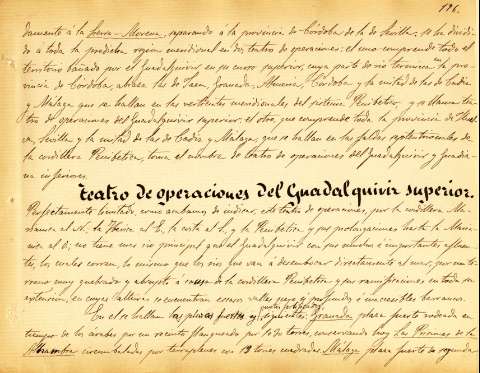 126.
damento á la Sierra-Morena, separando á la provincia de Córdoba de la de Sevilla, se ha dividi-
do á toda la predicha region meridional en dos teatros de operaciones; el uno comprende todo el
territorio bañado por el Guadalquivir en su curso superior, cuya parte de rio termina la pro-
vincia de Córdoba, abraza las de Jaen, Granada, Murcia, Córdoba y la mitad de las de Cadiz
y Malaga que se hallan en las vertientes meridionales del sistema Penibetico, y se llama tea-
tro de operaciones del Guadalquivir superior; el otro, que comprende toda la provincia de Huel-
va, Sevilla y la mitad de las de Cadiz y Malaga, que se hallan en las faldas septentrionales de
la cordillera Penibetica, toma el nombre de teatro de operaciones del Guadalquivir y Guadia-
na inferiores.
Teatro de operaciones del Guadalquivir superior.
Perfectamente limitado, como acabamos de indicar, este teatro de operaciones, por la cordillera Ma-
rianica al N., la Iberica al E., la costa al S., y la Penibetica y sus prolongaciones hasta la Maria-
nica al O., no tiene mas rio principal que el Guadalquivir con sus muchos é importantes afluen-
tes, los cuales corren, lo mismo que los rios que van á desembocar directamente al mar, por un te-
rreno muy quebrado y abrupto á causa de la cordillera Penibetica y sus ramificaciones en toda su
extension, en cuyos valles se encuentran escasos valles y profundos é inaccesibles barrancos.
En el se hallan las plazas fuertes y puntos fortificados siguientes: Granada plaza fuerte rodeada en
tiempo de los arabes por un recinto flanqueado por torres, conservando hoy La Princesa de la
Alhambra circunvalada por terraplenes con 13 torres cuadradas. Málaga plaza fuerte de segunda